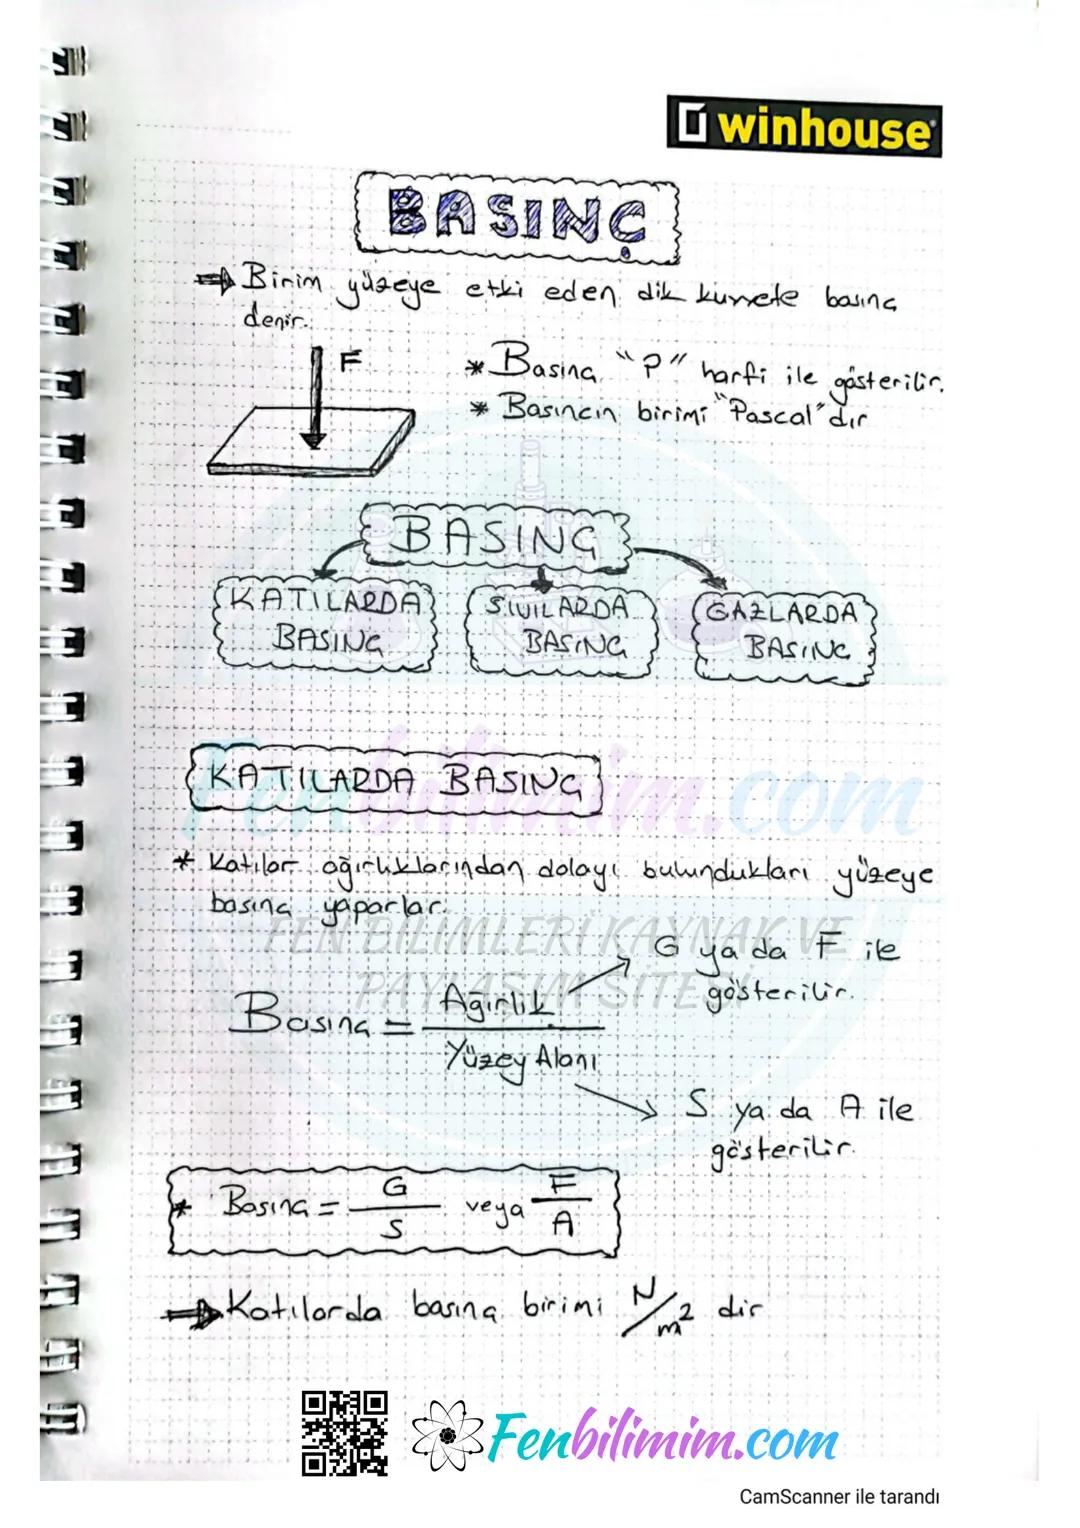 winhouse
BASINÇ
⇒ Birim yüzeye etki eden dik kuvvete basınç
denir.
F
* Basınç "P" harfi ile gösterilir.
* Basıncın birimi "Pascal" dır
BASINÇ
KATILARDA
BASINÇ
SIVILARDA
BASINÇ
GAZLARDA
BASINÇ
KATILARDA BASINÇ
Fenbilimim.com
* Katılar ağırlıklarından dolayı bulundukları yüzeye
basınç yaparlar.
FEN BİLİMLERİ KAYNAK VE
PAYLAŞIM SİTESİ
G ya da F ile
gösterilir.
Basınç = Ağırlık
Yüzey Alanı
S ya da A ile
gösterilir.
* Basınç = G/S veya F/A
⇒ Katılarda basınç birimi N/m² dir
Fenbilimim.com
CamScanner ile tarandı